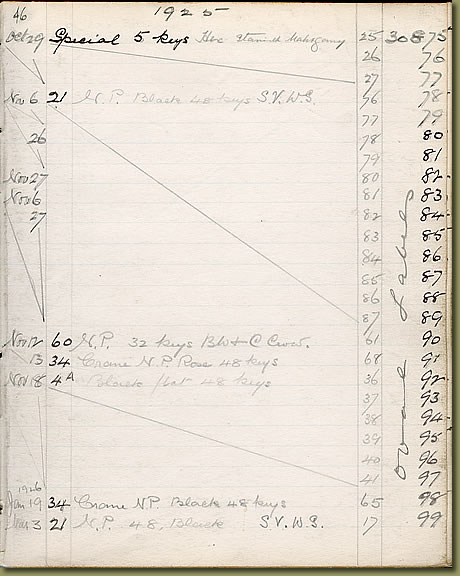 46 1925
Oct 29 Special 5 keys Stained Mahogany 25 30875
26 76
27 77
Nov 6 21 N.P. Black 48 keys S.V.W.S. 76 78
77 79
26 78 80
79 81
Nov 27 80 82
Nov 6 81 83
27 82 84
83 85
84 86
85 87
86 88
87 89
Nov 12 60 N.P. 32 keys BW + C Crow. 61 90
13 34 Crane N.P. Rose 48 keys 68 91
Nov 18 4A Black flat 48 keys 36 92
37 93
38 94
39 95
40 96
41 97
1926
Jan 19 34 Crane N.P. Black 48 keys 65 98
3 21 N.P. 48. Black S.V.W.S. 17 99
Oval Labels